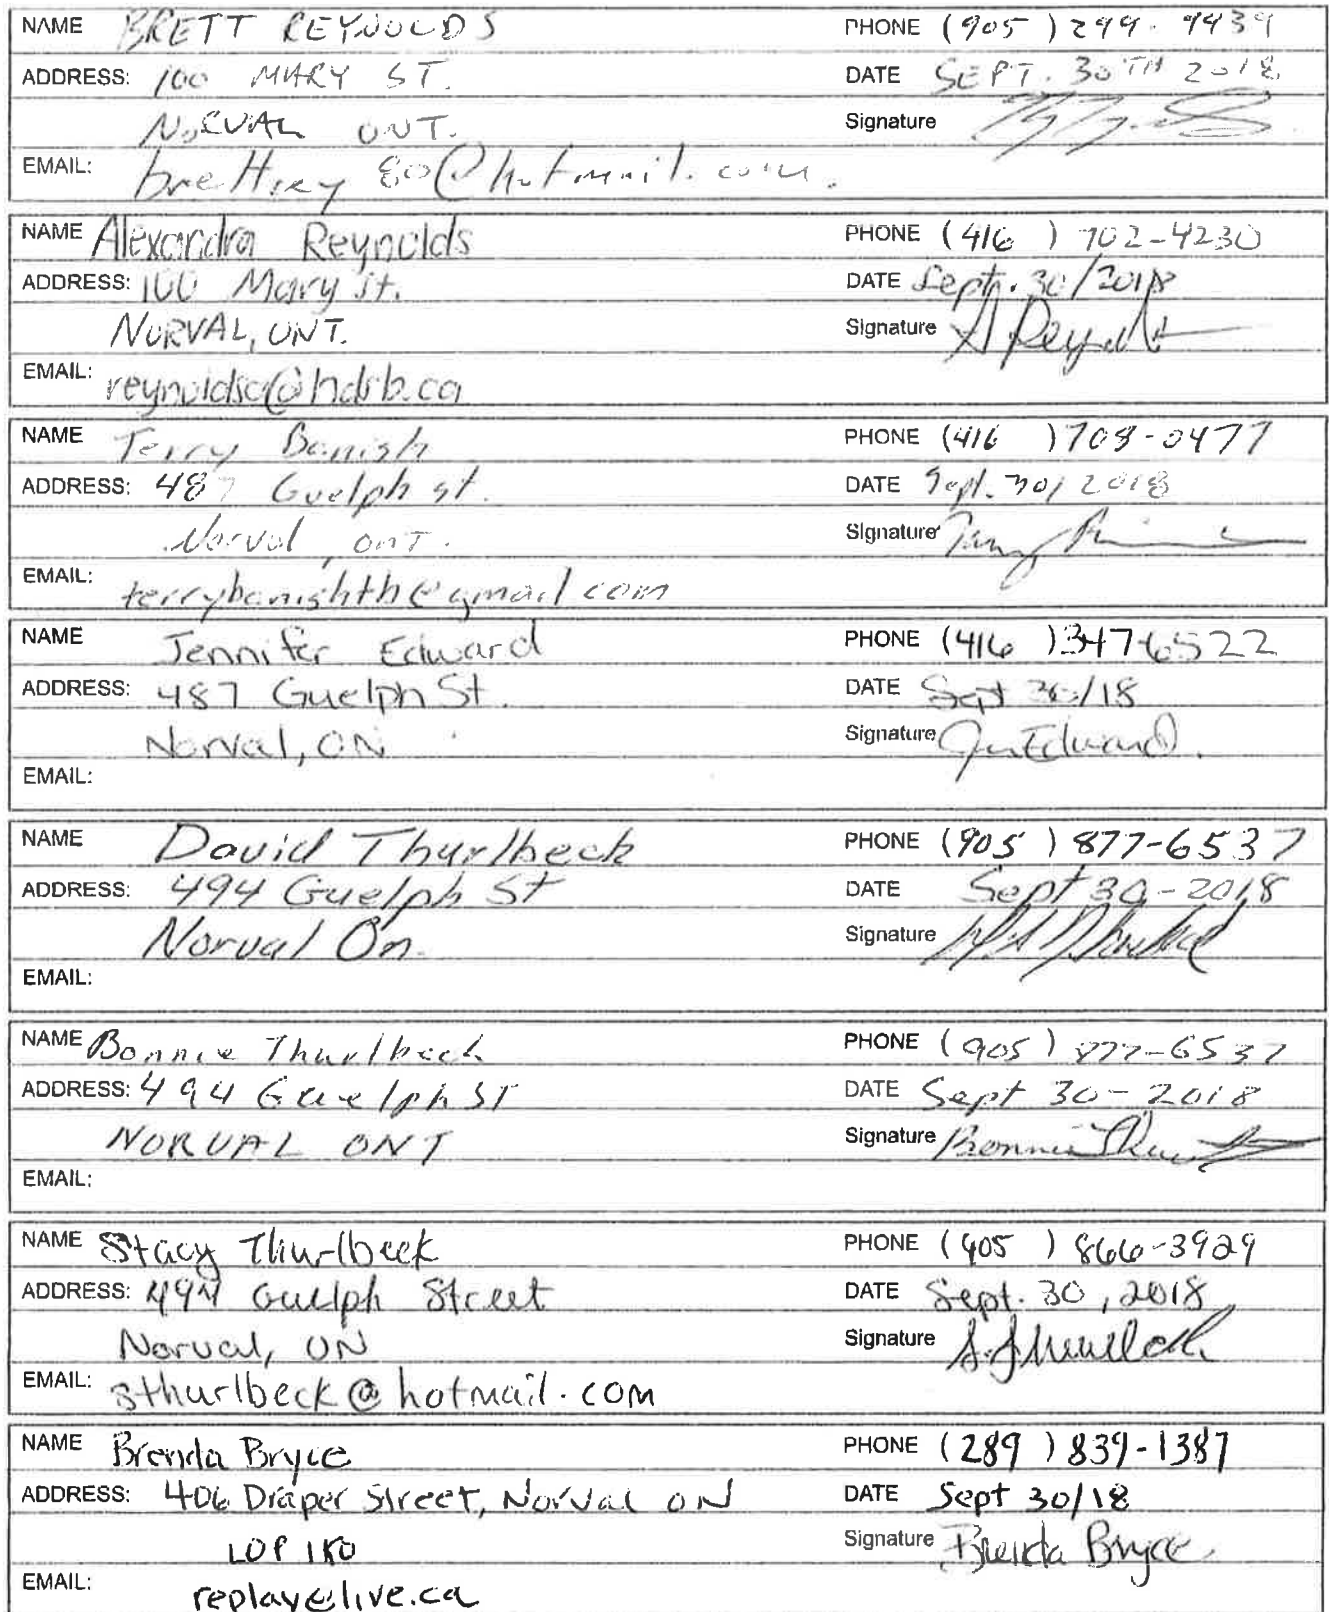 NAME BRETT REYNOLDS PHONE (905 ) 299-9439
ADDRESS: 100 MARY ST. DATE SEPT. 30TH 2018
NORVAL ONT. Signature
EMAIL: brettrey80@hotmail.com.
NAME Alexandra Reynolds PHONE (416 ) 702-4230
ADDRESS: 100 Mary St. DATE Sept. 30/2018
NORVAL, ONT. Signature A Reynolds
EMAIL: reynoldsa@hdsb.ca
NAME Terry Banish PHONE (416 ) 708-0477
ADDRESS: 487 Guelph st. DATE Sept. 30/2018
Norval, ONT. Signature
EMAIL: terrybanishth@gmail com
NAME Jennifer Edward PHONE (416 ) 347-6522
ADDRESS: 487 Guelph St. DATE Sept 30/18
Norval, ON Signature Jen Edward.
EMAIL:
NAME David Thurlbeck PHONE (905 ) 877-6537
ADDRESS: 494 Guelph St DATE Sept 30-2018
Norval On. Signature
EMAIL:
NAME Bonnie Thurlbeck PHONE (905 ) 877-6537
ADDRESS: 494 Guelph ST DATE Sept 30-2018
NORVAL ONT Signature Bonnie
EMAIL:
NAME Stacy Thurlbeck PHONE (905 ) 866-3929
ADDRESS: 494 Guelph Street DATE Sept. 30, 2018
Norval, ON Signature S. Thurlbeck
EMAIL: sthurlbeck@hotmail.com
NAME Brenda Bryce PHONE (289 ) 839-1387
ADDRESS: 406 Draper Street, Norval ON DATE Sept 30/18
L0P 1K0 Signature Brenda Bryce
EMAIL: replay@live.ca